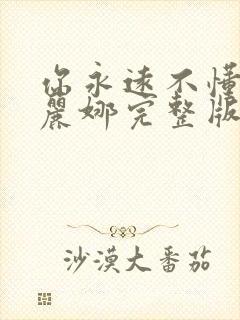 你永远不懂
麗娜完整版
沙漠大番茄